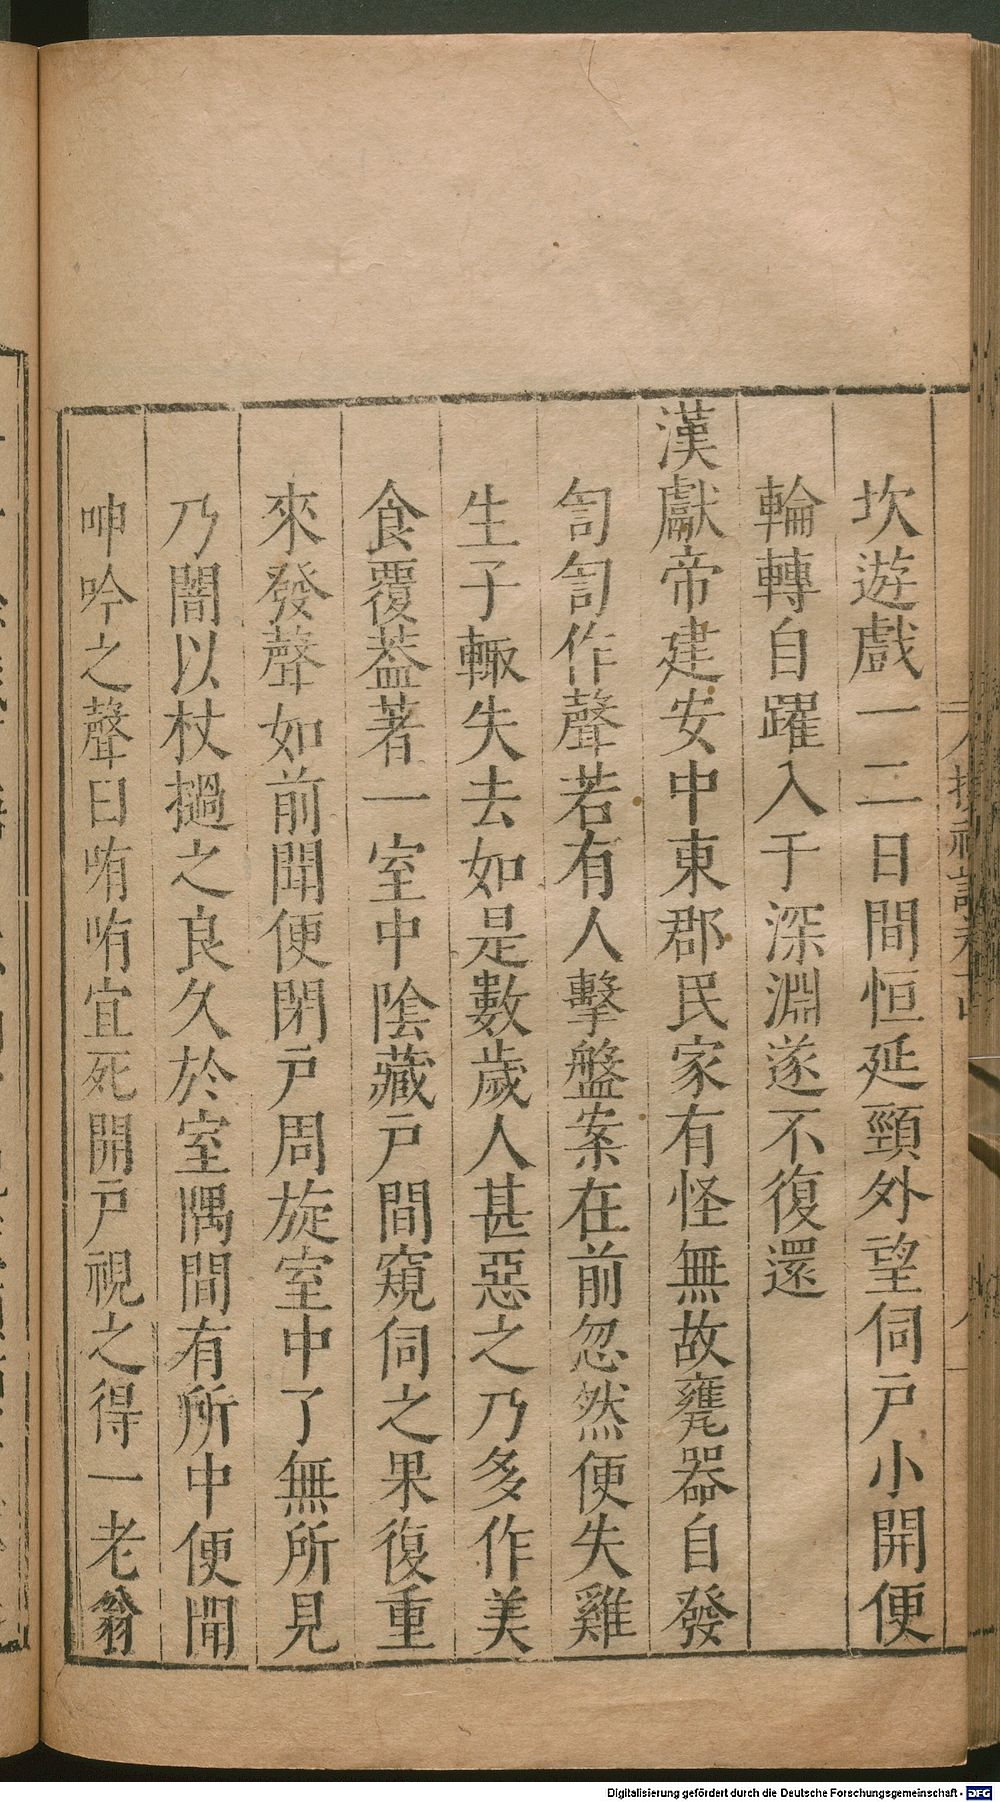 坎遊戲一二日間恒延頸外望伺戶小開便
輪轉自躍入于深淵遂不復還
漢獻帝建安中東郡民家有怪無故甕器自發
訇訇作聲若有人擊盤案在前忽然便失雞
生子輙失去如是數歲人甚惡之乃多作美
食覆葢著一室中陰藏戶間窺伺之果復重
來發聲如前聞便閉戶周旋室中了無所見
乃闇以杖撾之良久於室隅間有所中便聞
呻吟之聲曰哊哊宜死開戶視之得一老翁
Digitalisierung gefördert durch die Deutsche Forschungsgemeinschaft - DFG